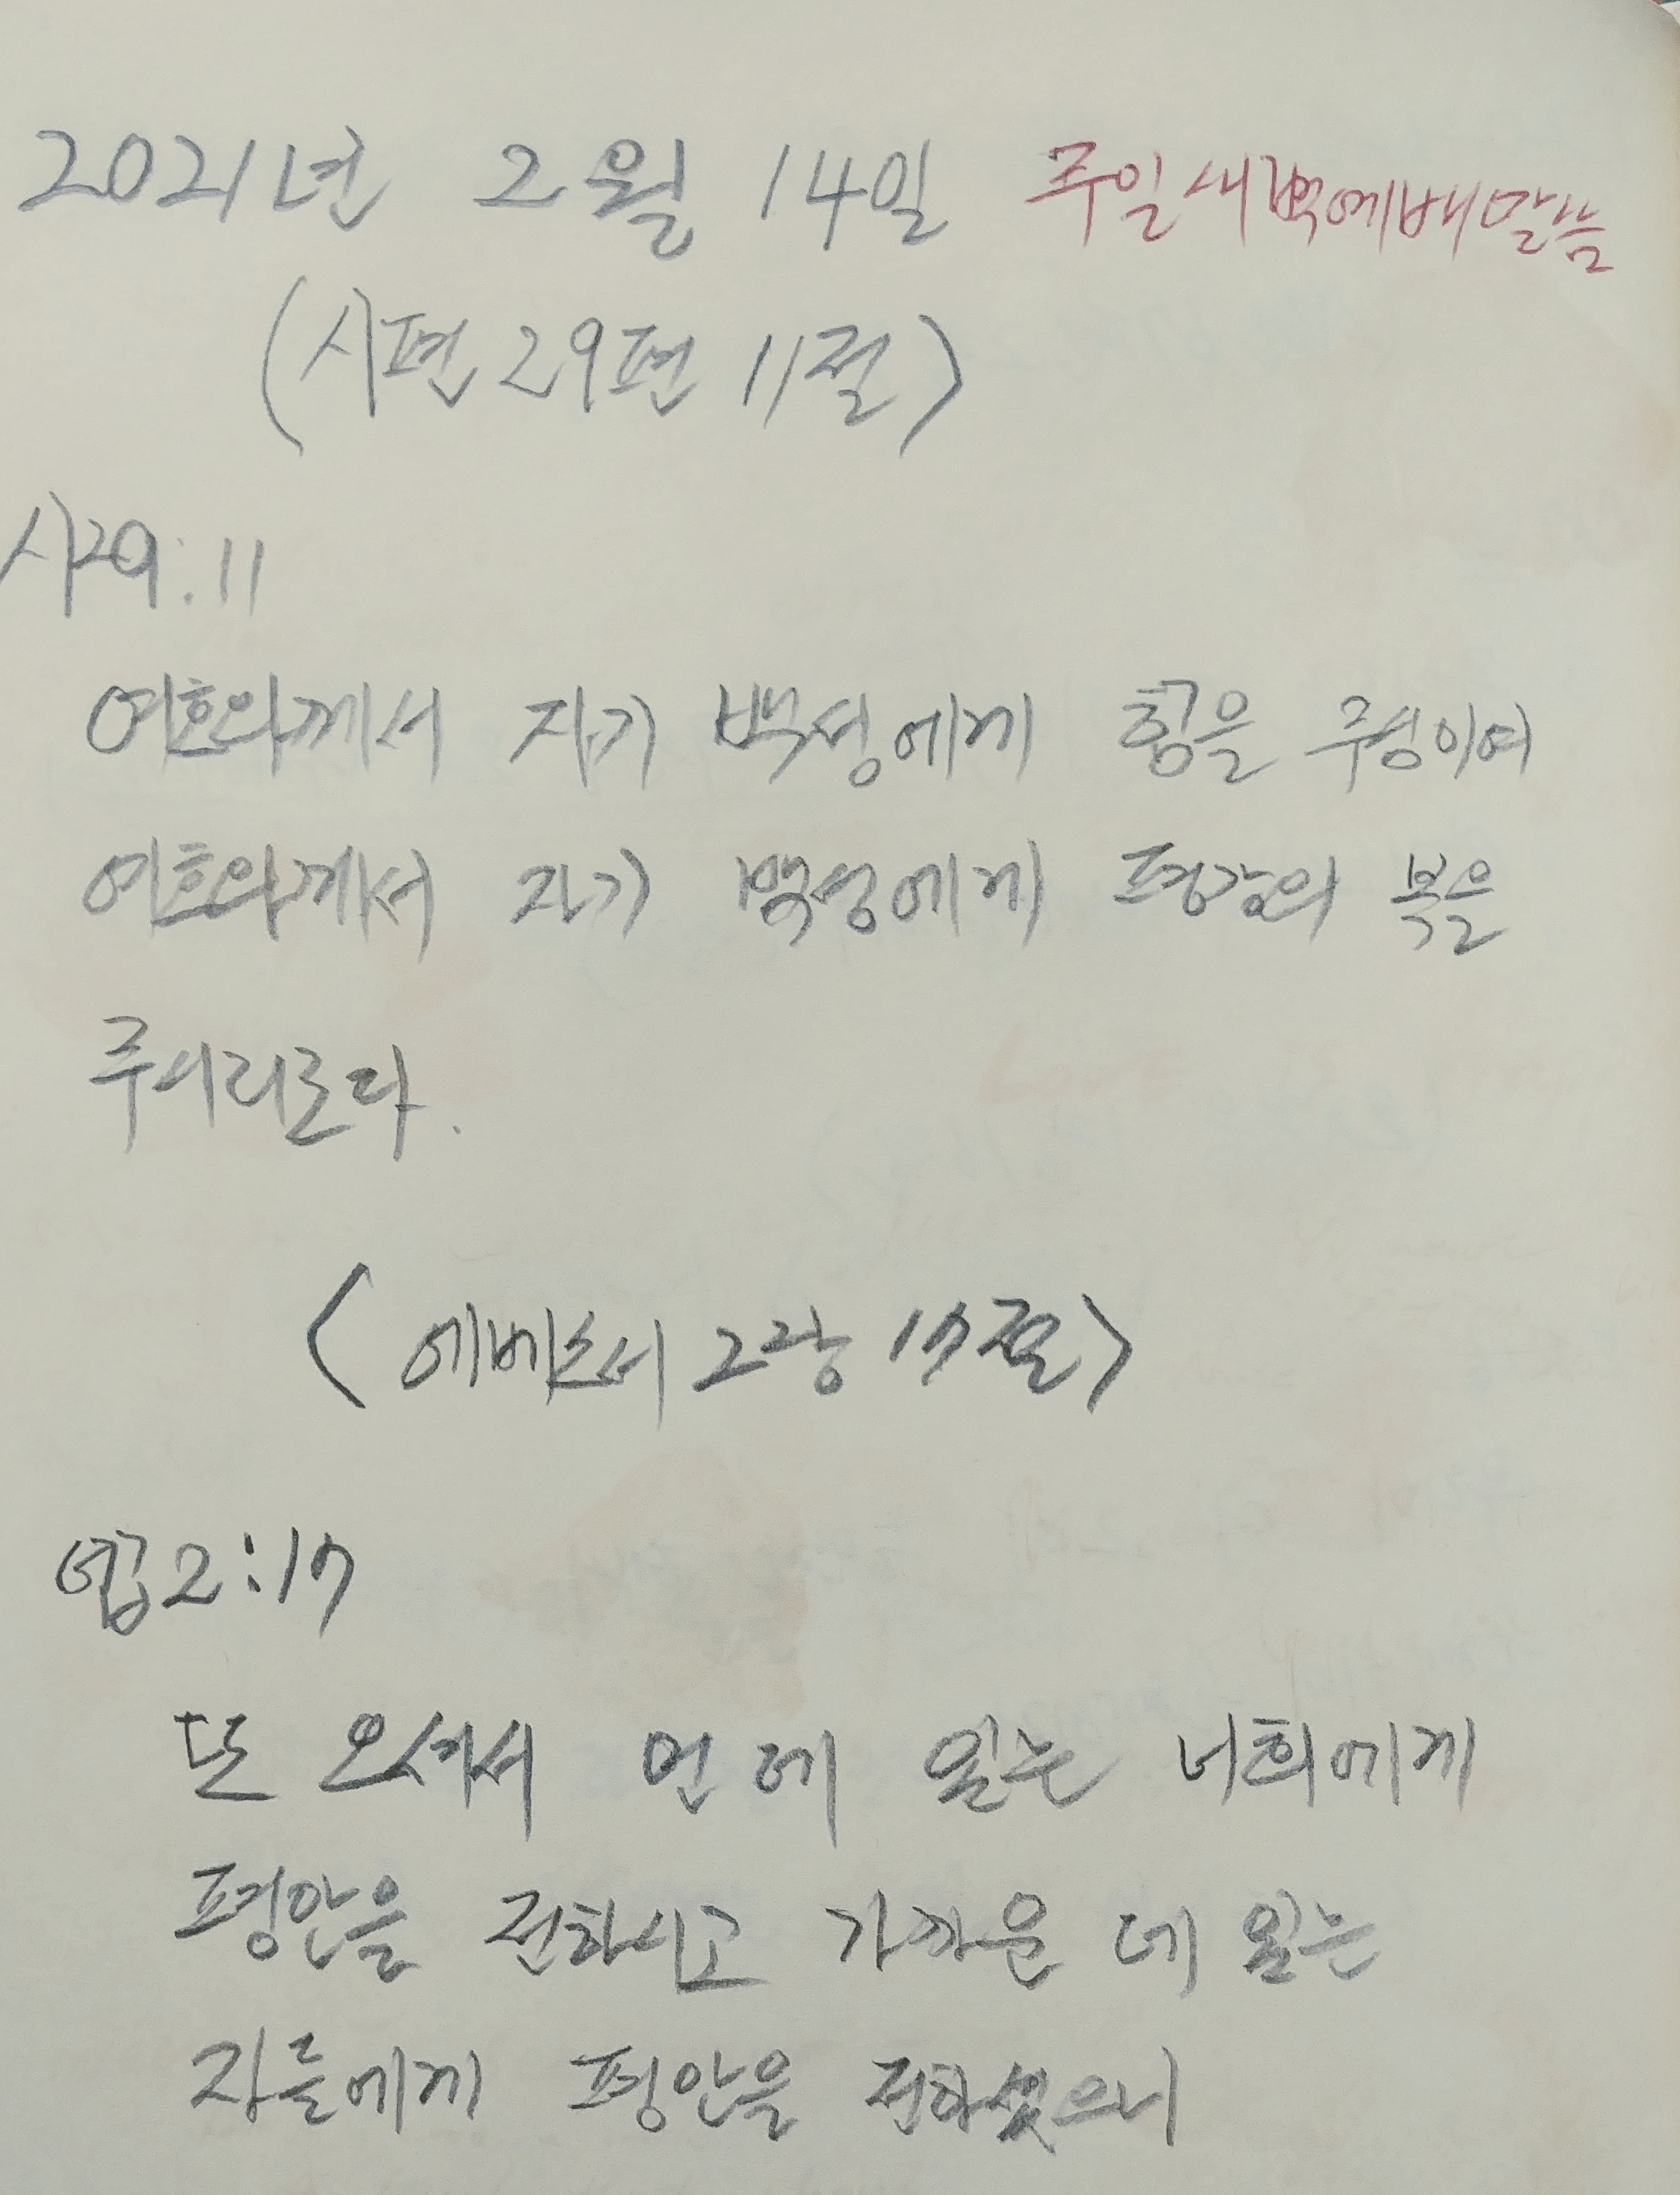 2021년 2월 14일 주일새벽예배말씀
(시편 29편 11절)
시29:11
여호와께서 자기 백성에게 힘을 주심이여
여호와께서 자기 백성에게 평강의 복을
주시리로다.
<에베소서 2장 17절>
엡2:17
또 오셔서 먼 데 있는 너희에게
평안을 전하시고 가까운 데 있는
자들에게 평안을 전하셨으니